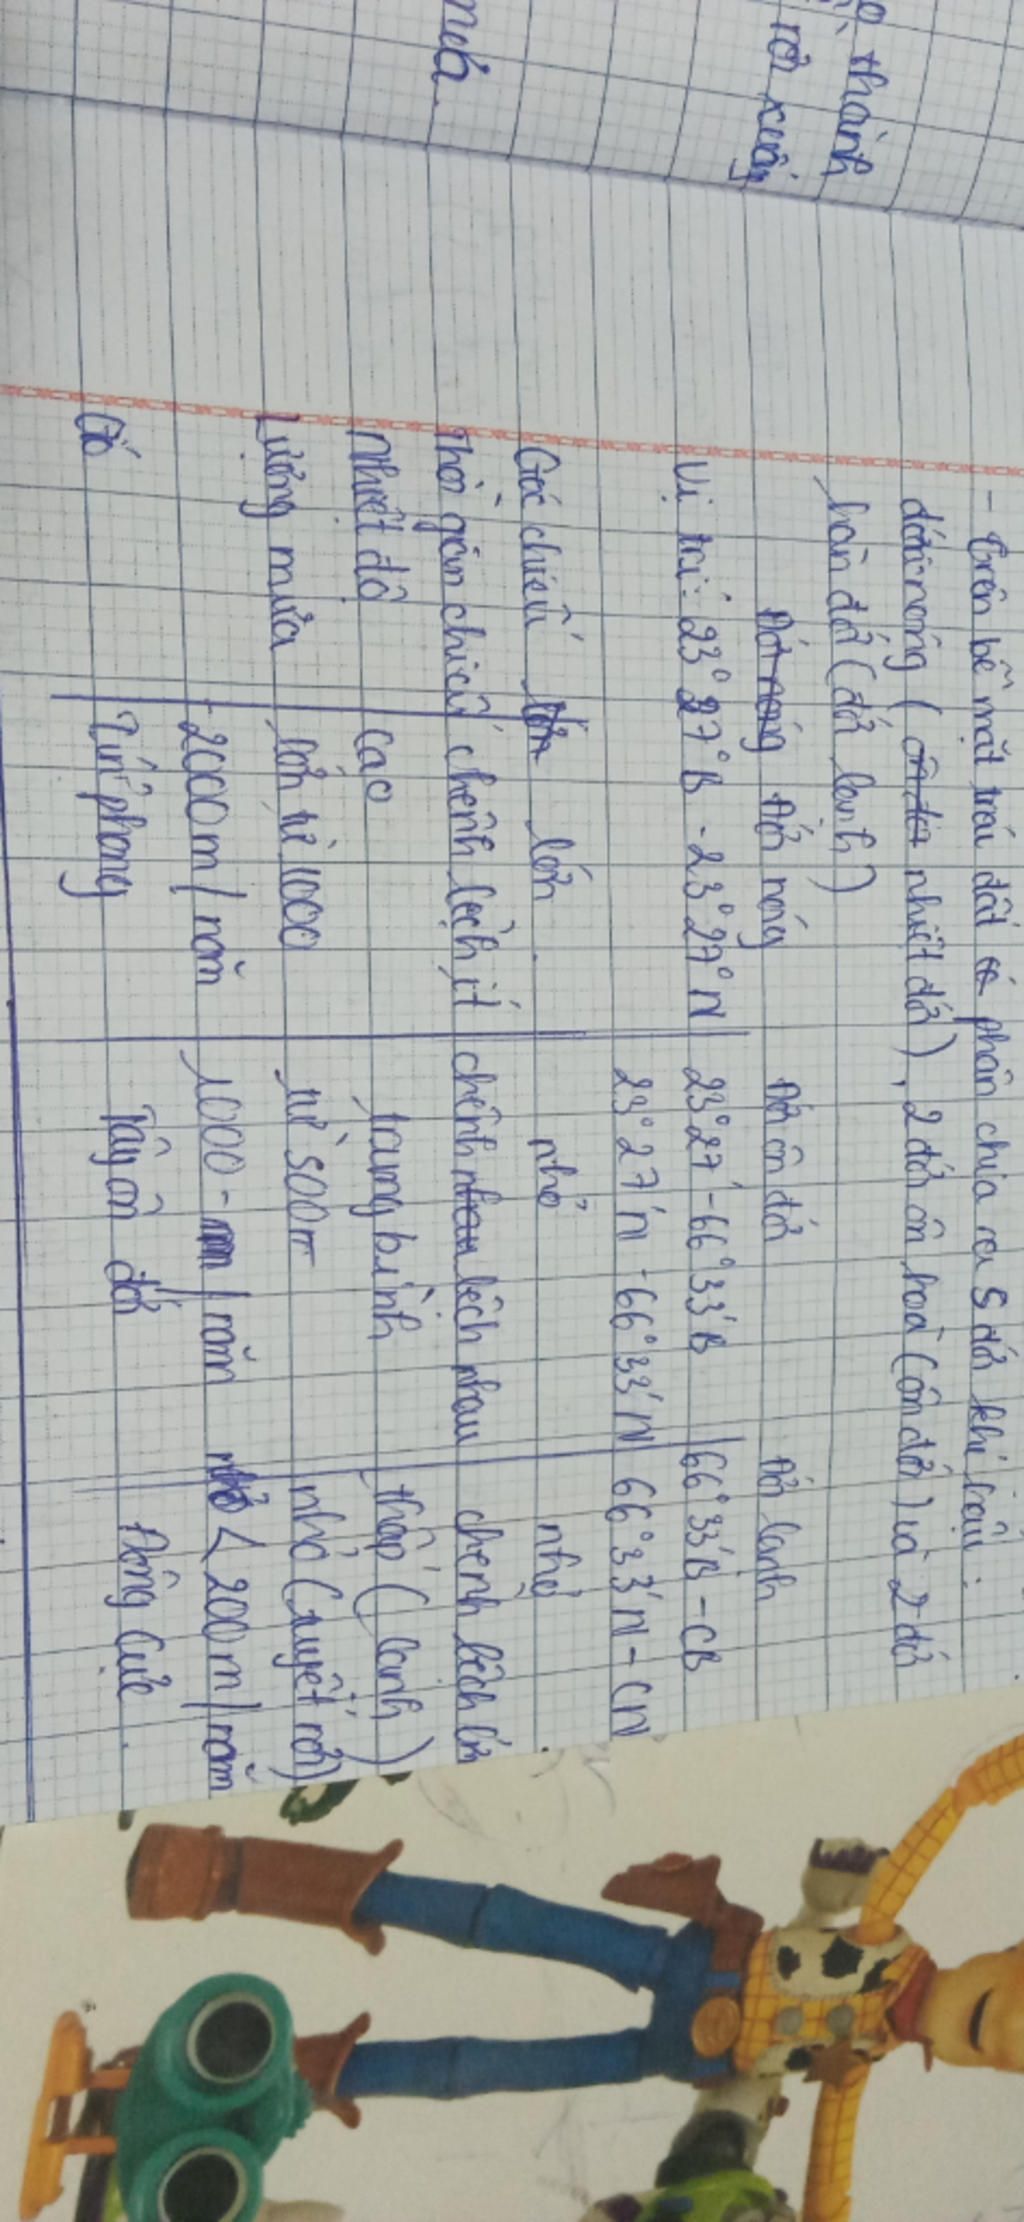 thành
rơi xuống
mưa.
- Trên bề mặt trái đất có phân chia ra 5 đới khí hậu:
đới nóng ( nhiệt đới), 2 đới ôn hoà (ôn đới) và 2 đới
hàn đới (đới lạnh)
Đới nóng Đới nóng Đới ôn đới Đới lạnh
Vị trí: 23°27°B - 23°27°N 23°27'-66°33'B 66°33'B-CB
23°27'N-66°33'N 66°33'N-CN
Góc chiếu lớn lớn. nhỏ nhỏ.
Thời gian chiếu chênh lệch ít chênh nhau lệch nhau chênh lệch lớn
Nhiệt độ cao trung bình thấp (lạnh)
Lượng mưa lớn từ 1000 từ 500m nhỏ (tuyết rơi)
-2000m/năm 1000-mm/năm nhỏ <200m/năm
Gió Tín phong Tây ôn đới Đông cực.